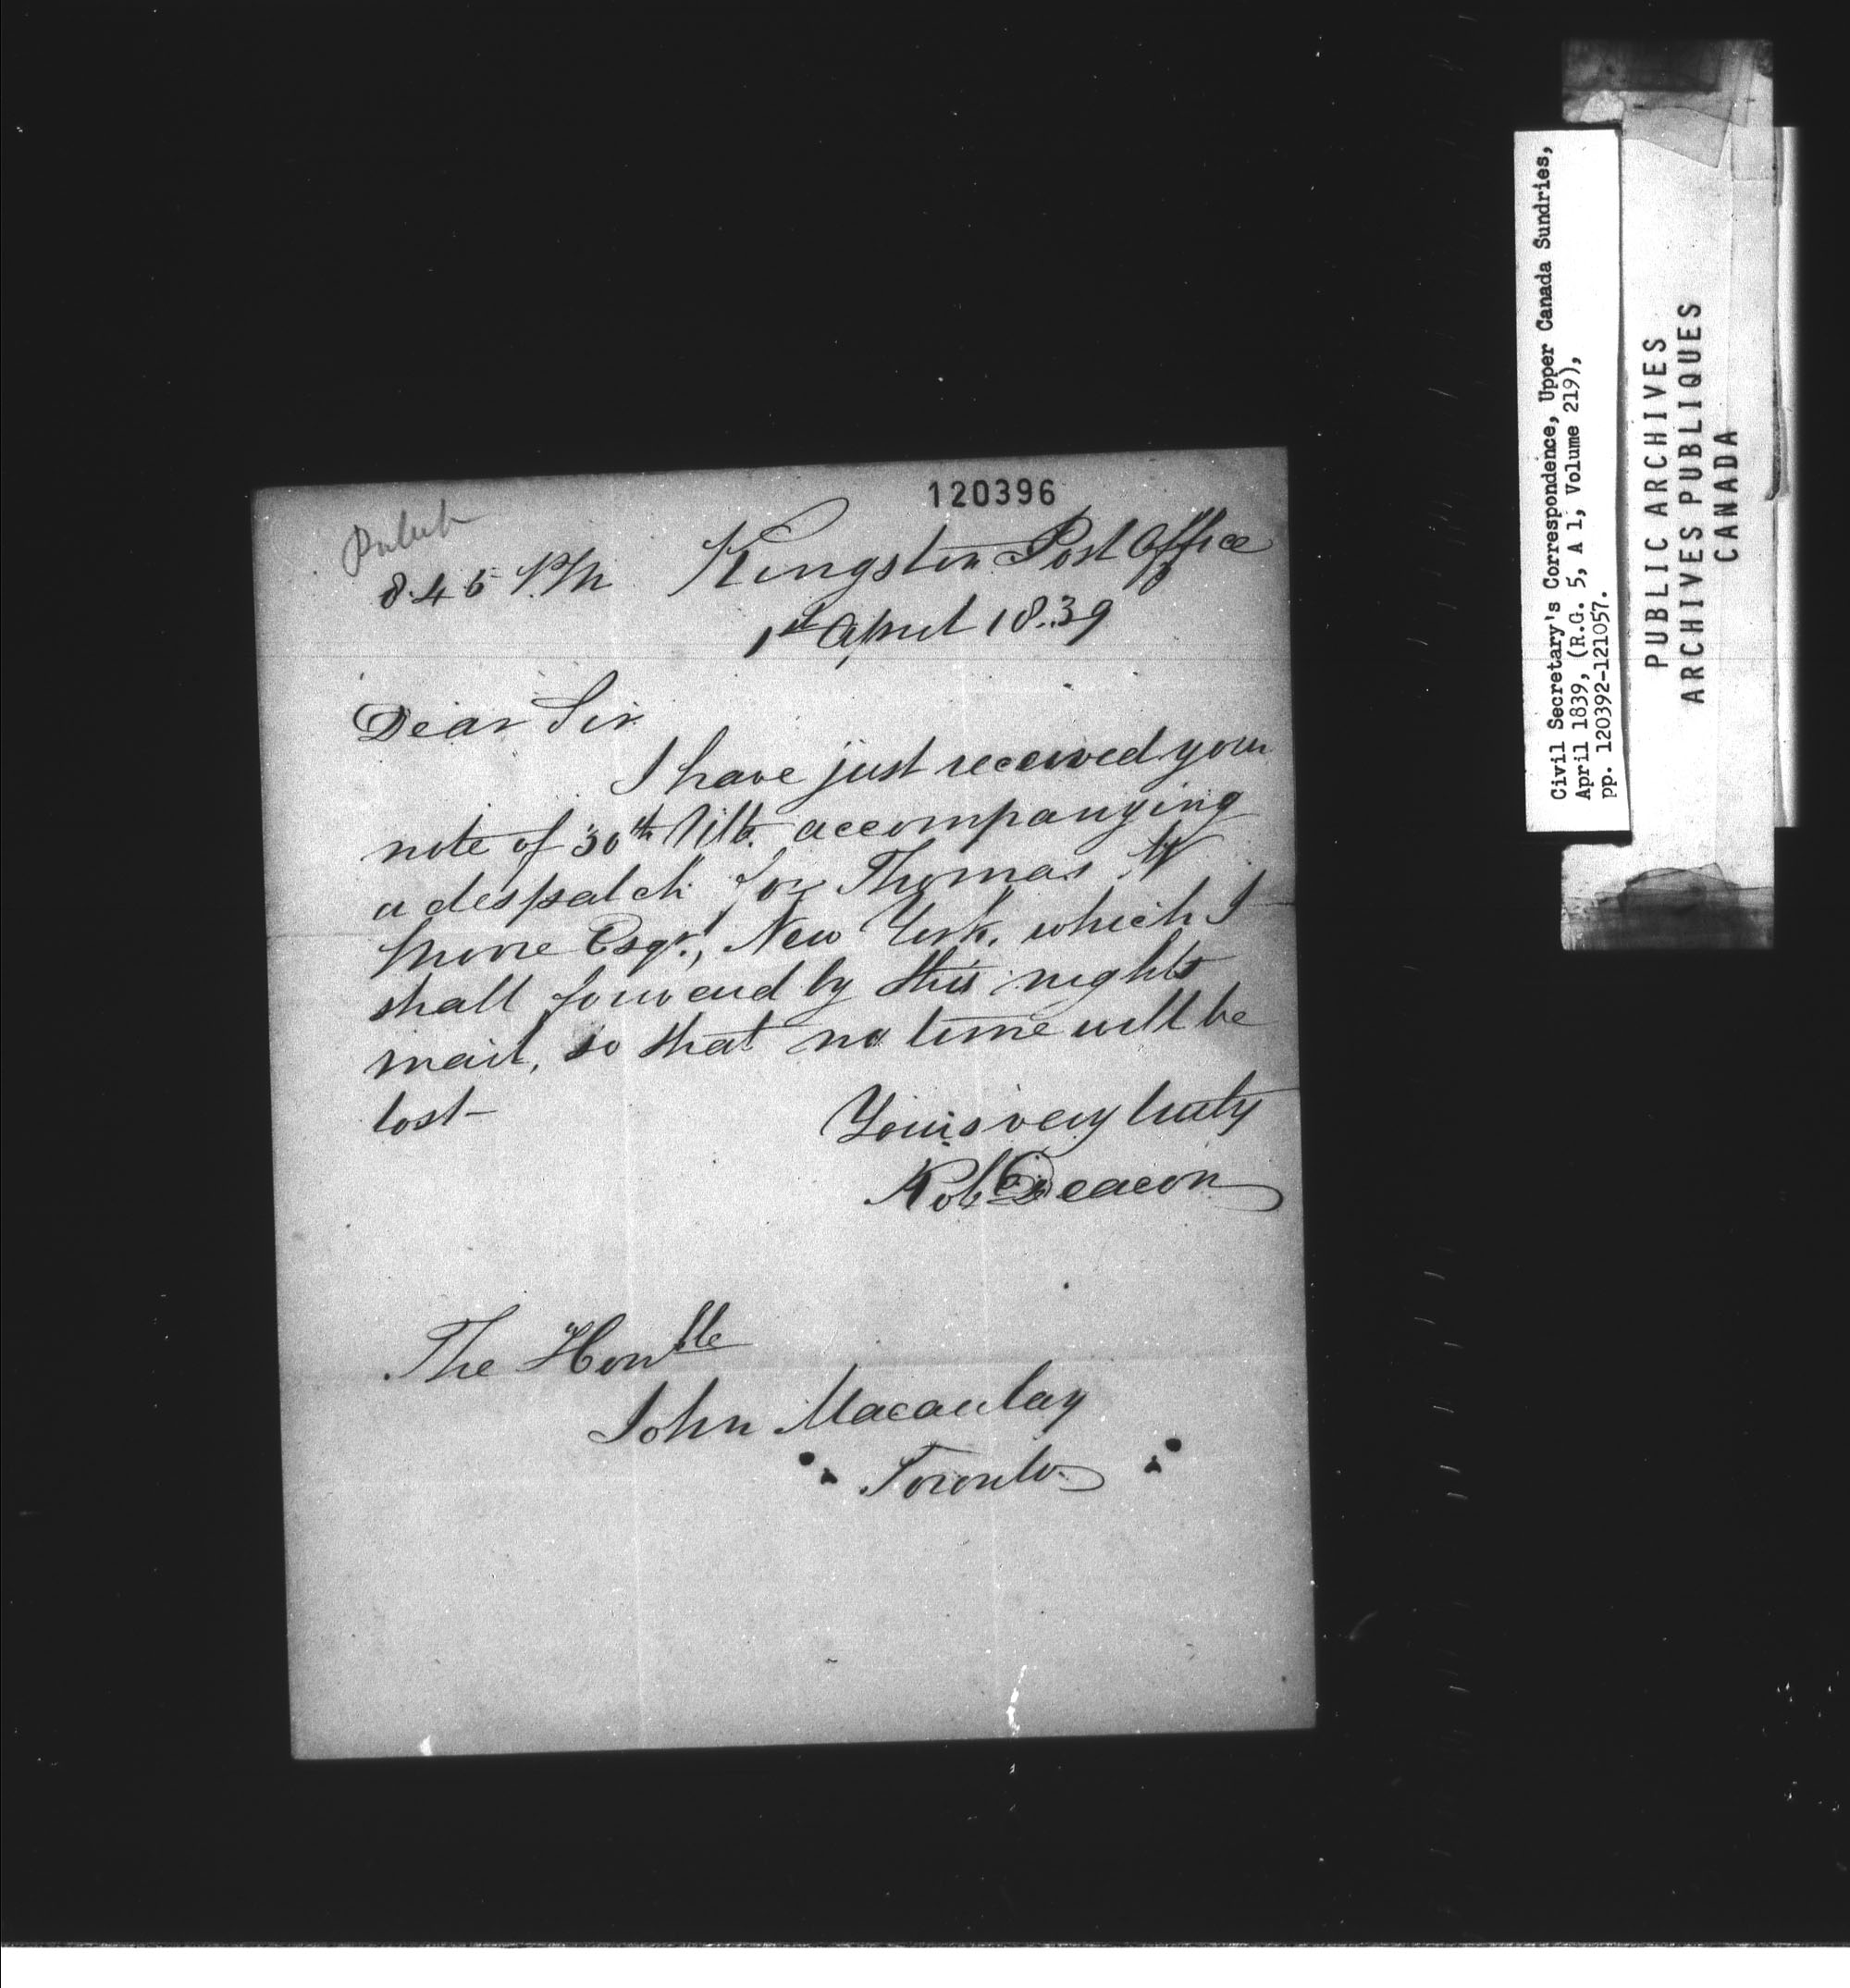 120396
8.45 P.M Kingston Post Office
1st April 1839
Dear Sir
I have just received your
note of 30th Ulto. accompanying
a despatch for Thomas W
Moore Esqr., New York, which I
shall forward by this nights
mail, so that no time will be
lost—
Yours very truly
Robt Deacon
The Honble
John Macaulay
Toronto
Civil Secretary's Correspondence, Upper Canada Sundries,
April 1839, (R.G. 5, A 1, Volume 219),
pp. 120392-121057.
PUBLIC ARCHIVES
ARCHIVES PUBLIQUES
CANADA